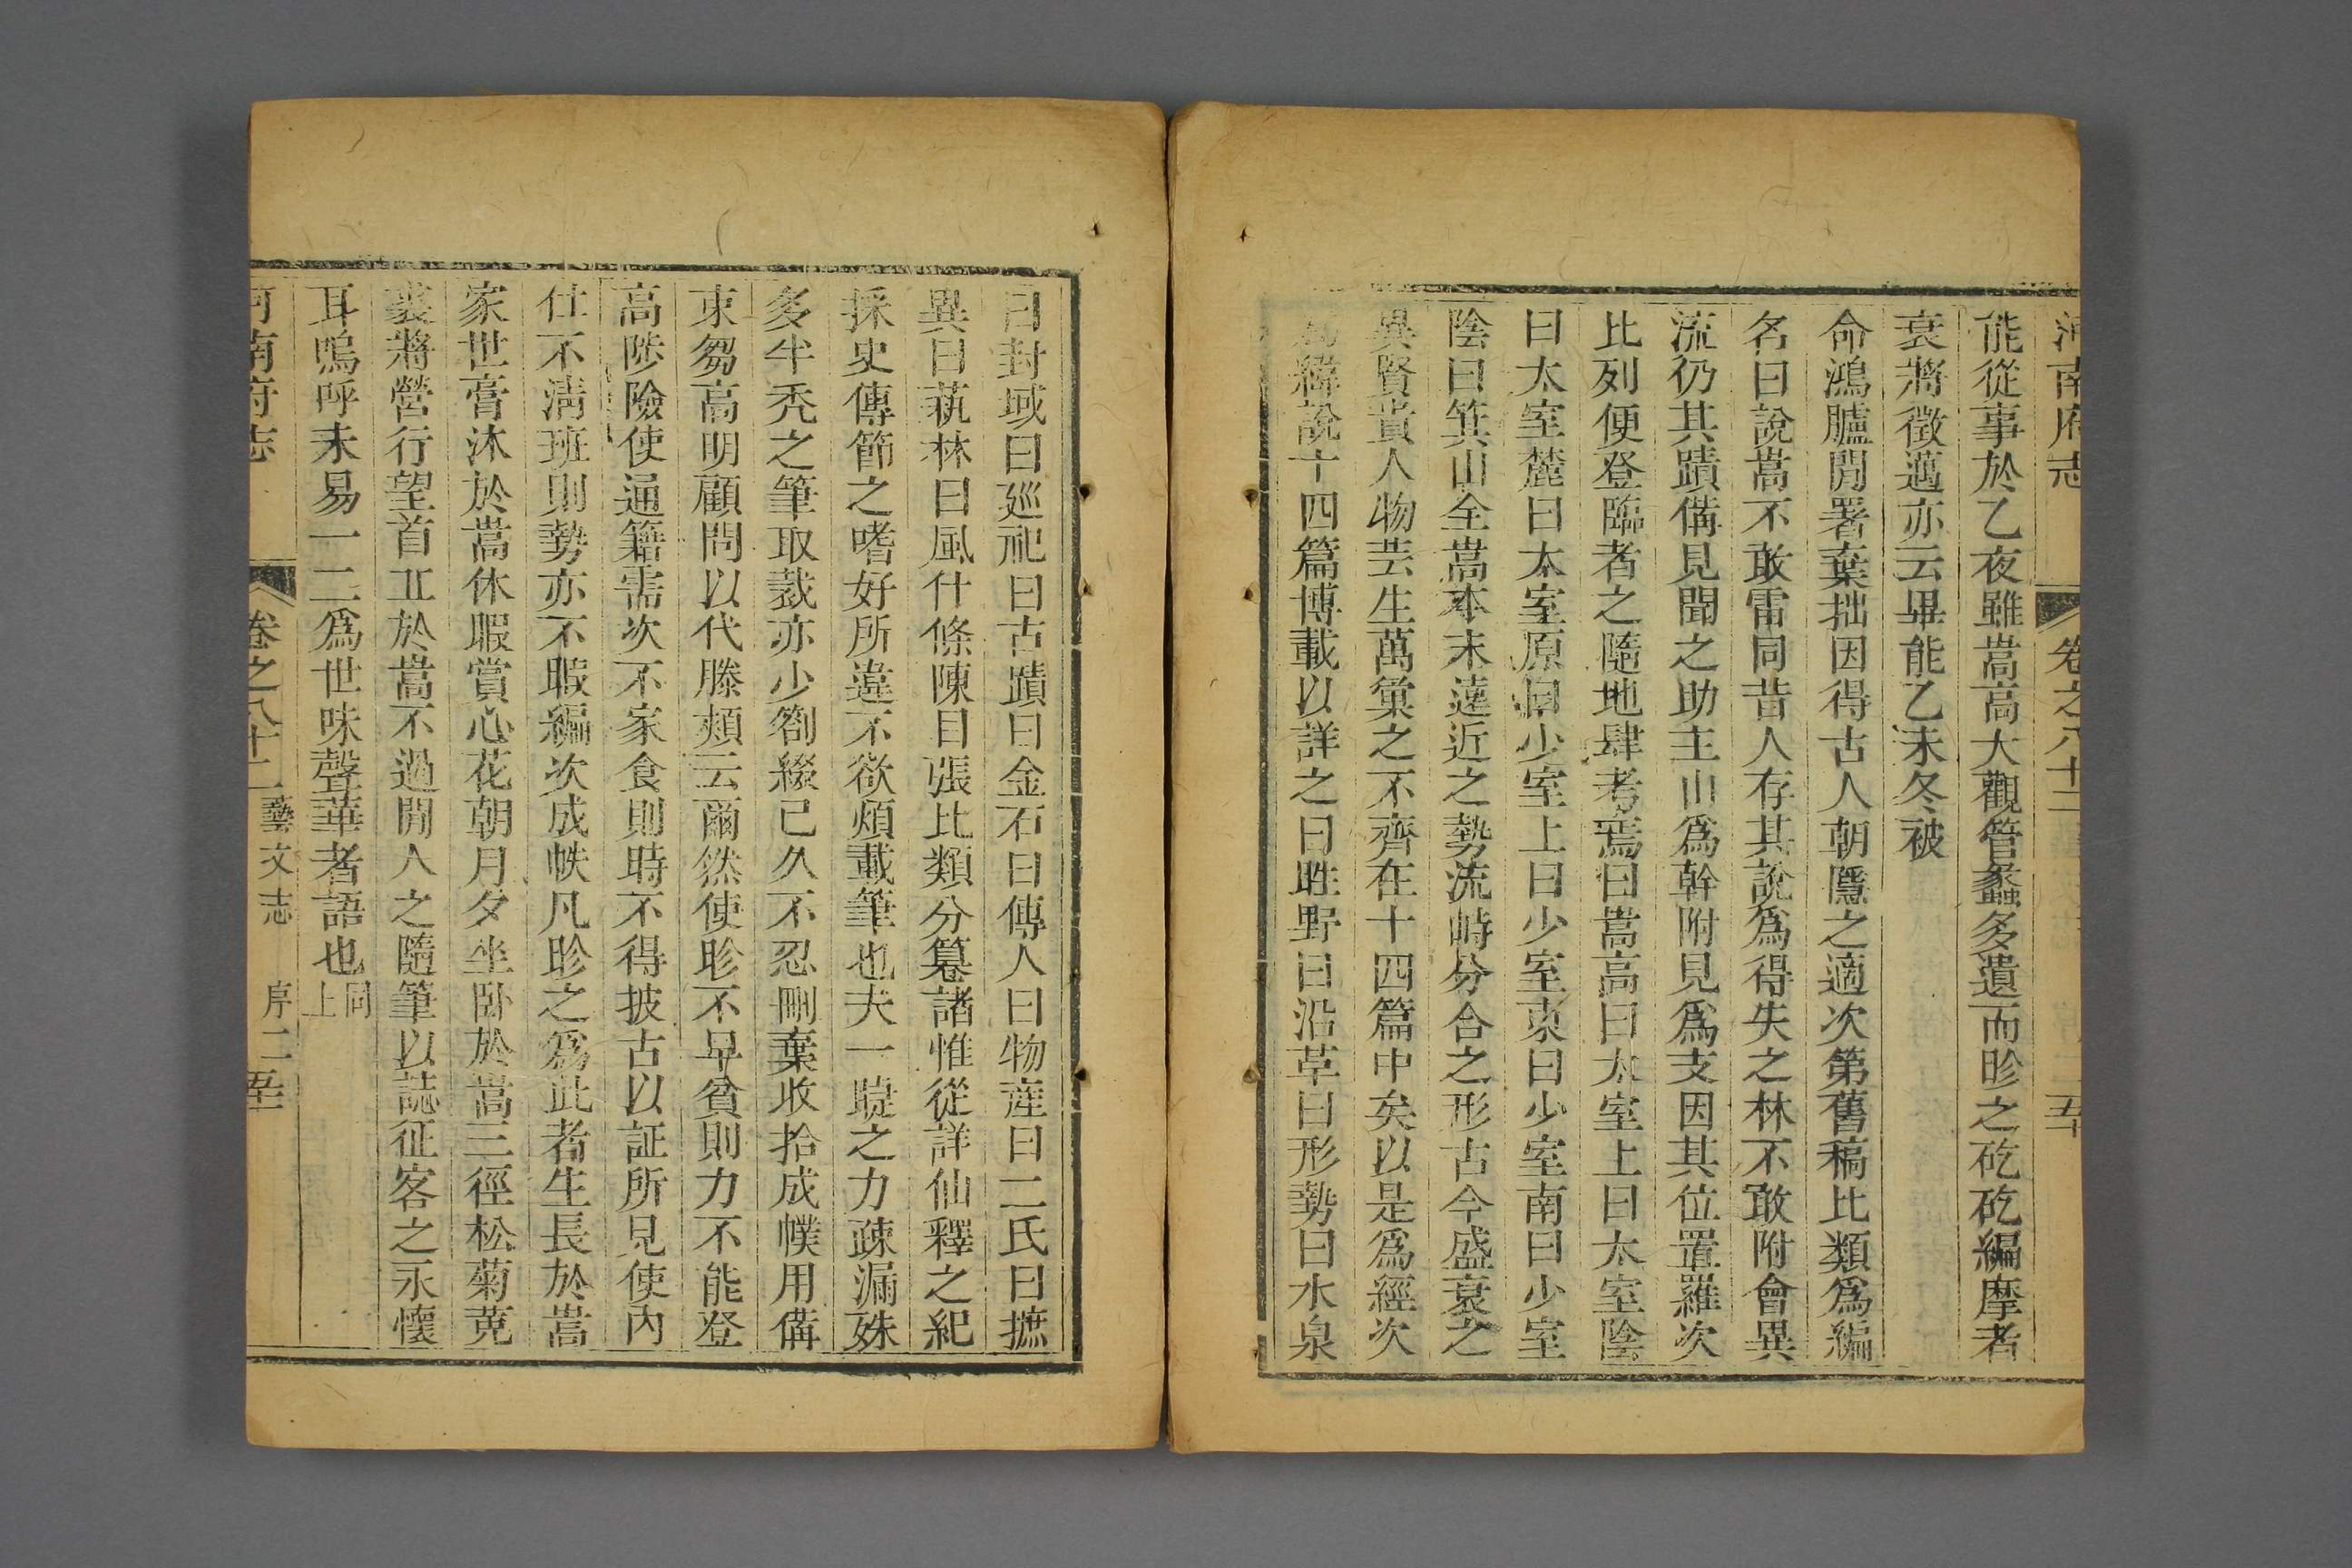 河南府志 卷之八十二 五十
能從事於乙夜雖嵩高大觀管蠡多遺而昣之矻矻編摩者
衰將徵邁亦云畢能乙未冬被
命鴻臚閒署棄拙因得古人朝隱之適次第舊稿比類爲編
名曰說嵩不敢雷同昔人存其說爲得失之林不敢附會異
流仍其蹟備見聞之助主山爲幹附見爲支因其位置羅次
比列便登臨者之隨地肆考焉曰嵩高曰太室上曰太室陰
曰太室麓曰太室原曰少室上曰少室東曰少室南曰少室
陰曰箕山全嵩本末遠近之勢流峙分合之形古今盛衰之
異賢貴人物芸生萬彙之不齊在十四篇中矣以是爲經次
爲緯說十四篇博載以詳之曰甠野曰沿革曰形勢曰水泉
曰封域曰廵祀曰古蹟曰金石曰傳人曰物產曰二氏曰摭
異曰蓺林曰風什條陳目張比類分纂諸惟從詳仙釋之紀
採史傳節之嗜好所違不欲煩載筆也夫一𦗟之力疎漏姝
多半禿之筆取裁亦少劄綴已久不忍刪棄收拾成幞用備
束芻高明顧問以代滕頰云爾然使昣不早貧則力不能登
高陟險使通籍需次不家食則時不得披古以証所見使內
仕不淸班則勢亦不暇編次成帙凡昣之爲此者生長於嵩
家世膏沐於嵩休暇賞心花朝月夕坐卧於嵩三徑松菊菟
裘將營行望首丘於嵩不過閒人之隨筆以誌征客之永懷
耳嗚呼未易一二爲世味聲華者語也 同上
河南府志 卷之八十二 藝文志 序二 五十一